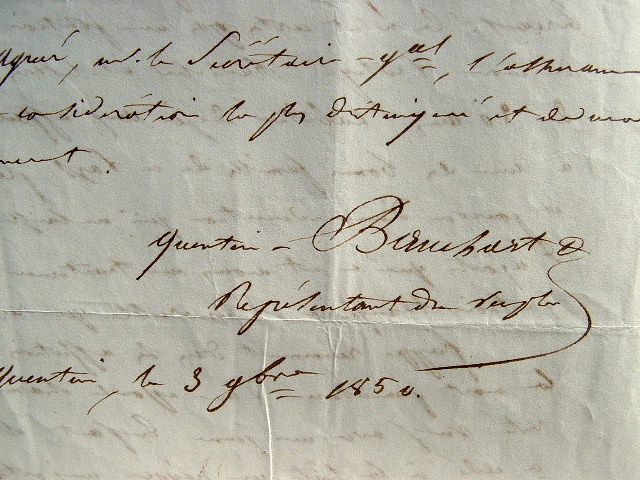 Agréer, M. le Secrétaire-gal, l'assurance
considération la plus distinguée et de mon
ment.
Quentin-Bauchart
Représentant du Peuple
Quentin, le 3 9bre 1850.